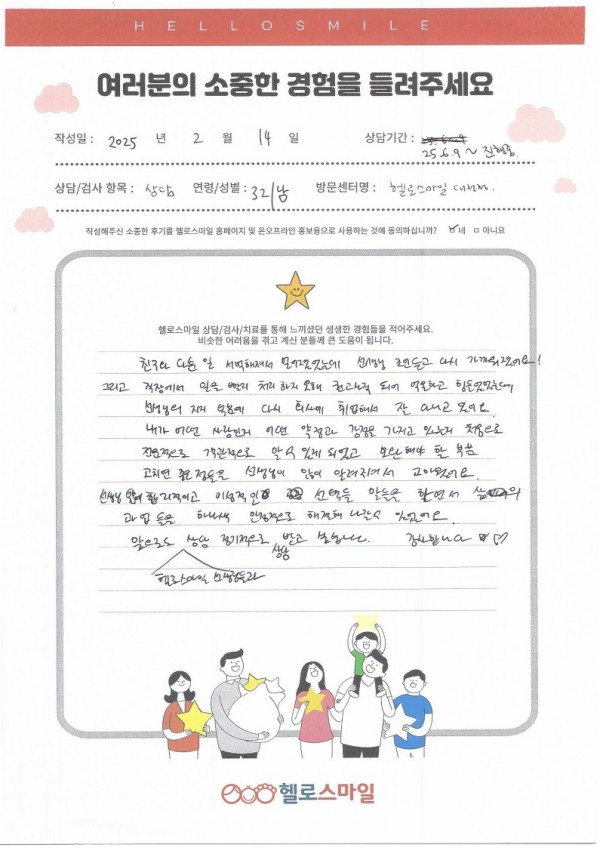 HELLOSMILE
여러분의 소중한 경험을 들려주세요
작성일 : 2025 년 2 월 14 일 상담기간 :
25.6.9 ~ 진행중
상담/검사 항목 : 상담 연령/성별 : 32/남 방문센터명 : 헬로스마일
작성해주신 소중한 후기를 헬로스마일 홈페이지 및 온오프라인 홍보용으로 사용하는 것에 동의하십니까? ☑네 □아니요
헬로스마일 상담/검사/치료를 통해 느끼셨던 생생한 경험들을 적어주세요.
비슷한 어려움을 겪고 계신 분들께 큰 도움이 됩니다.
친구와 다툰 일 선생님 다시 가까워졌어요!
그리고 직장에서 일을 빨리 처리하지 못해 권고사직 되어
선생님의 다시 회사에 취업해서 잘 다니고 있어요.
내가 어떤 사람인지 어떤 약점과 강점을 가지고 있는지 처음으로
전문적으로 객관적으로 알 수 있게 되었고 보완해야 할 부분
고치면 선생님이 많이 알려주셔서 고마웠어요.
선생님 합리적이고 이성적인 선택들을 하면서 삶의
과업들을 하나씩 안정적으로 해결해 나갈 수 있었어요.
앞으로도 상담 정기적으로 받고 싶습니다. 감사합니다
상담
헬로스마일 선생님들과
헬로스마일